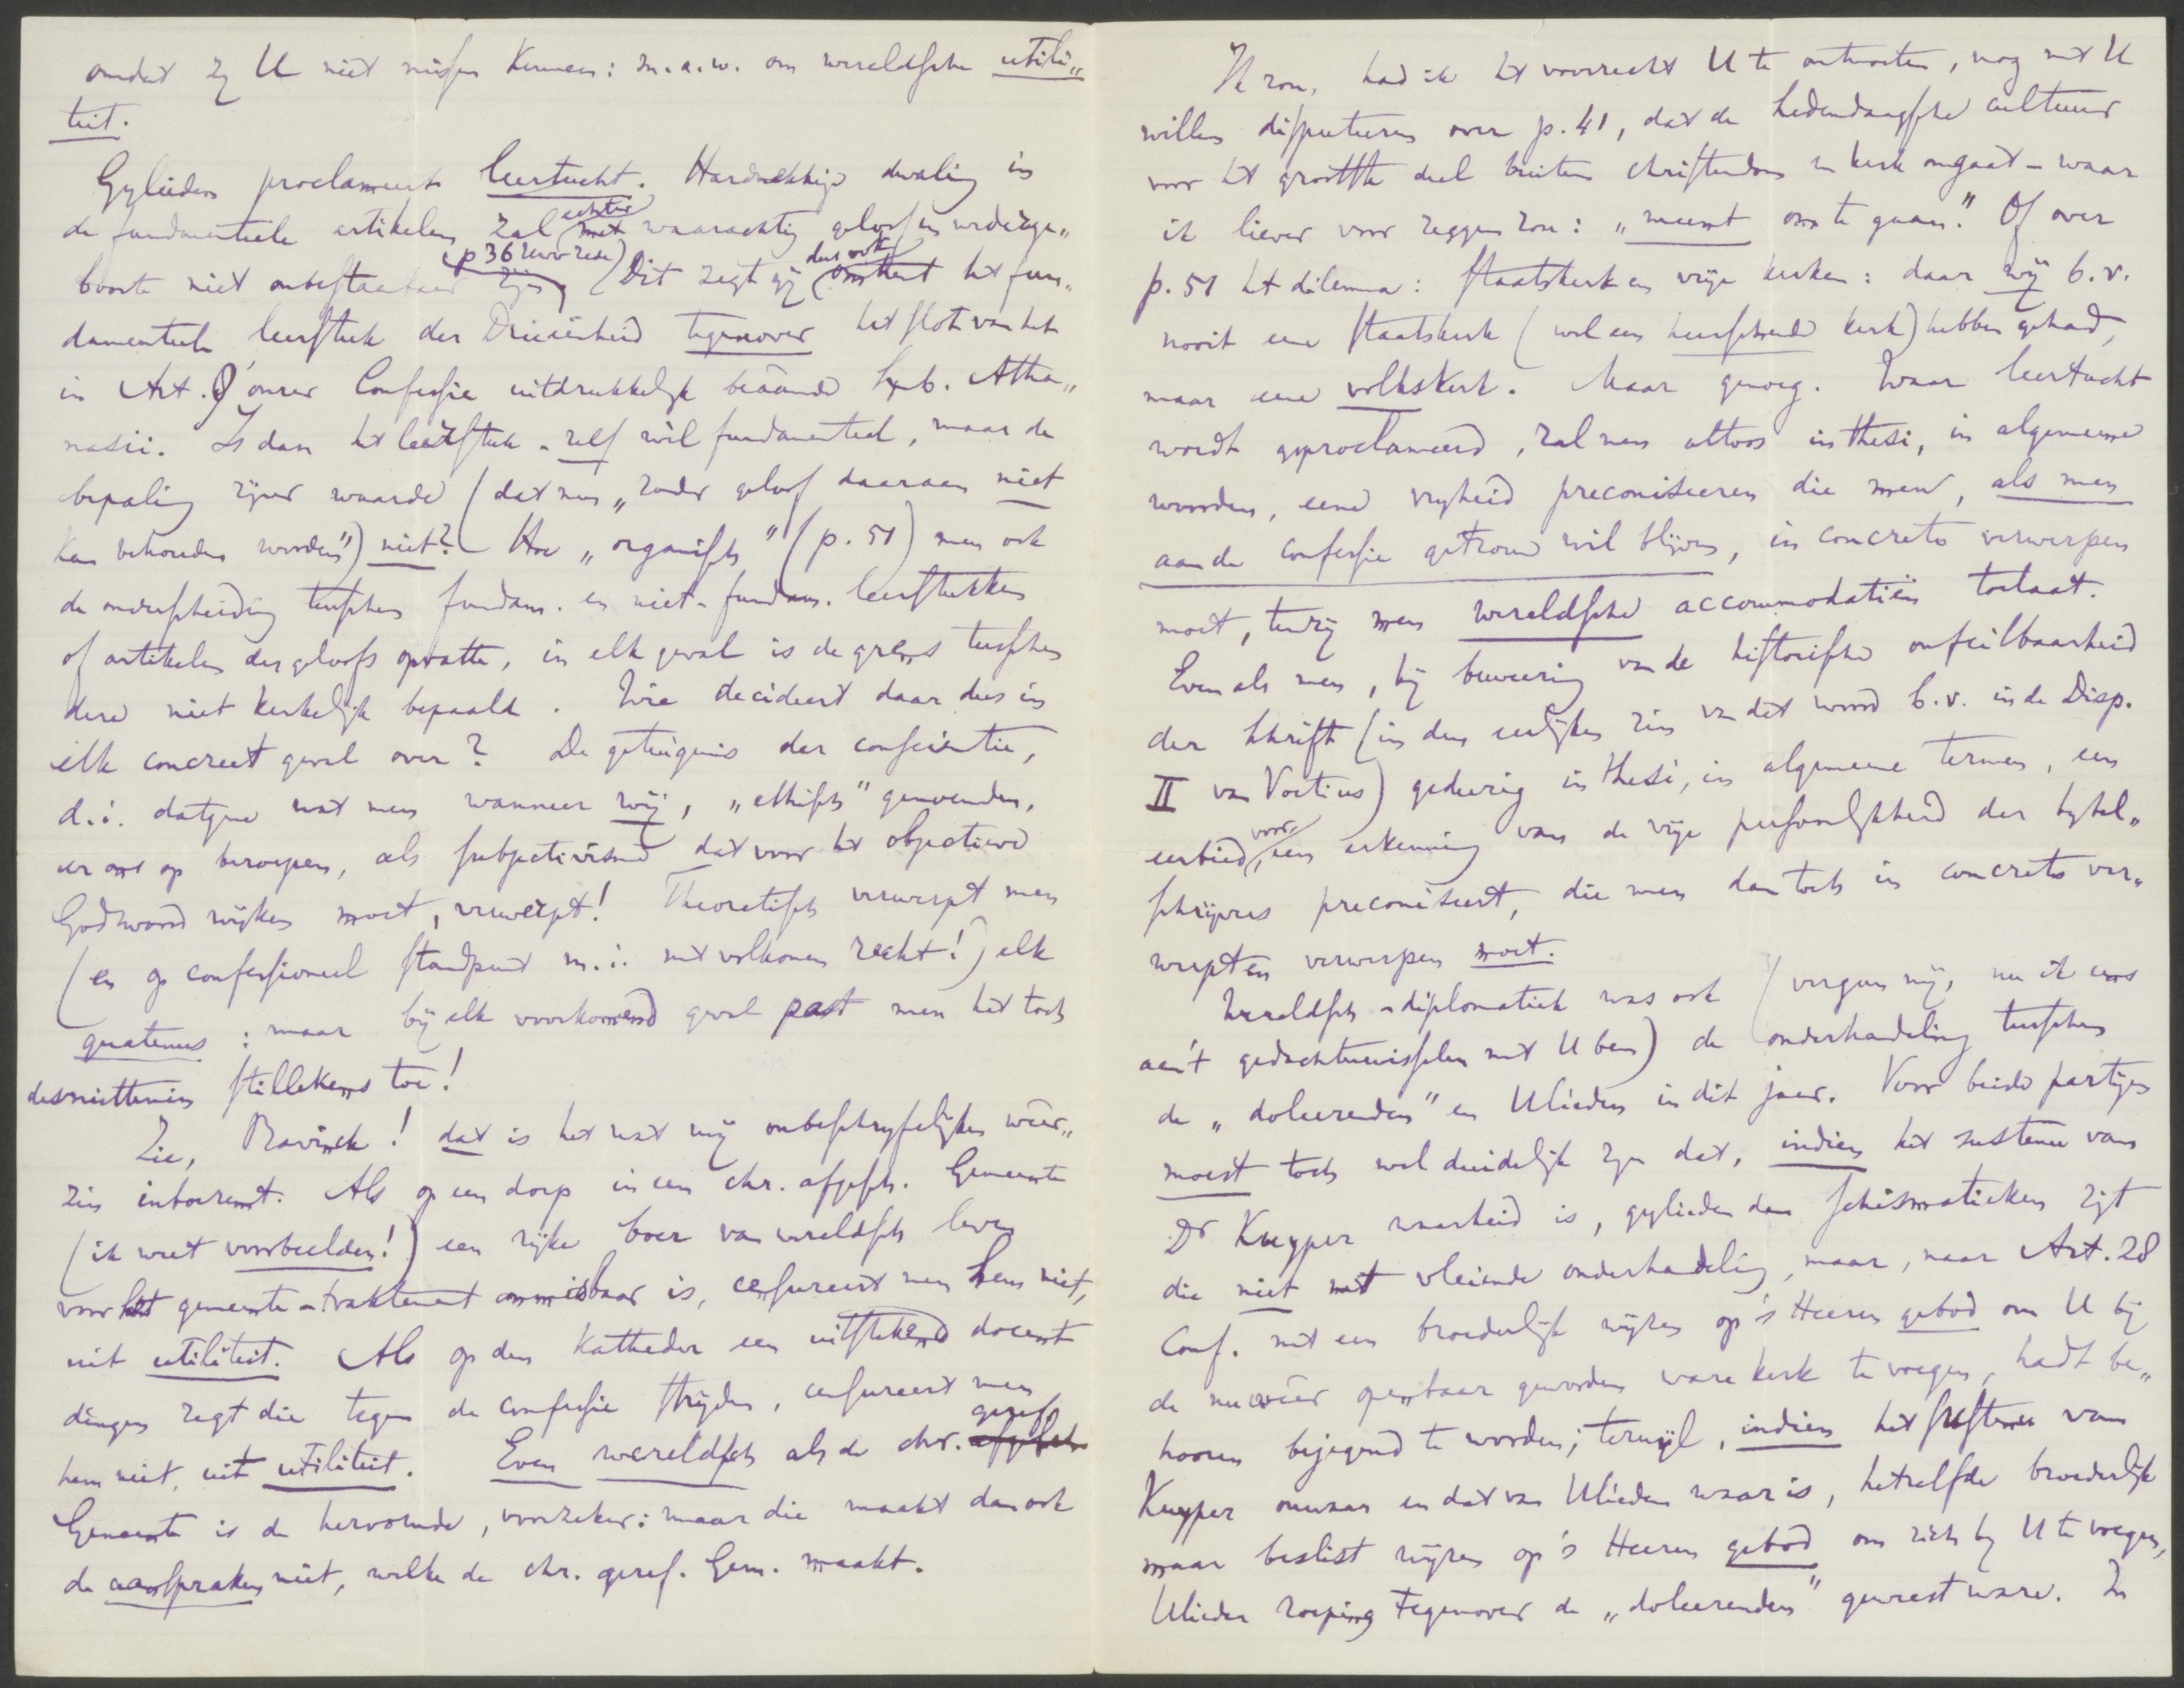 omdat zij U niet missen kunnen: m.a.w. om wereldsche utili„
teit.
Gylieden proclameert leertucht. Hardnekkige dwaling in
de fundamenteele artikelen zal echter met waarachtig geloof en wederge„
boorte niet onbestaanbaar zijn, (p 36 uwer rede) (Dit zegt gij dus ook omtrent het fun„
damenteele leerstuk der Drieëenheid tegenover het slot van het
in Art. 9 onzer Confessie uitdrukkelijk beäamde Symb. Atha„
nasii. Is dan het leerstuk-zelf wél fundamenteel, maar de
bepaling zijner waarde (dat men „zonder geloof daaraan niet
kan behouden worden") niet? Hoe „organisch" (p. 51) men ook
de onderscheiding tusschen fundam. en niet-fundam. leerstukken
of artikelen des geloofs opvatte, in elk geval is de grens tusschen
deze niet kerkelijk bepaald. Wie decideert daar dus in
elk concreet geval over? De getuigenis der conscientie,
d.i. datgene wat men wanneer wij, „ethisch" genoemden,
er ons op beroepen, als subjectivisme dat voor het objectieve
Godswoord wijken moet, verwerpt! Theoretisch verwerpt men
(en op confessioneel standpunt m.i. met volkomen recht!) elk
quatenus: maar bij elk voorkomend geval past men het toch
desniettemin stillekens toe!
Zie, Bavinck! dat is het wat mij onbeschrijfelijken weer„
zin inboezemt. Als op een dorp in een chr. afgesch. Gemeente
(ik weet voorbeelden!) een rijke boer van wereldsch leven
voor het gemeente-traktement onmisbaar is, censureert men hem niet,
uit utiliteit. Als op den katheder een uitstekend docent
dingen zegt die tegen de confessie strijden, censureert men
hem niet, uit utiliteit. Even wereldsch als de chr. geref. afgesch.
Gemeente is de hervormde, voorzeker: maar die maakt dan ook
de aanspraken niet, welke de chr. geref. Gem. maakt.
Ik zou, had ik het voorrecht U te ontmoeten, nog met U
willen disputeeren over p. 41, dat de hedendaagsche cultuur
voor het grootste deel buiten christendom en kerk omgaat - waar
ik liever voor zeggen zou: „meent om te gaan." Of over
p. 51 het dilemma: staatskerk en vrije kerken: daar wij b.v.
nooit eene staatskerk (wel een heerschende kerk) hebben gehad,
maar eene volkskerk. Maar genoeg. Waar leertucht
wordt geproclameerd, zal men altoos in thesi, in algemeene
woorden, eene vrijheid preconiseeren die men, als men
aan de confessie getrouw wil blijven, in concreto verwerpen
moet, tenzij men wereldsche accommodatiën toelaat.
Evenals men, bij bewering van de historische onfeilbaarheid
der Schrift (in den eerlijken zin van dit woord b.v. in de Disp.
II van Voetius) gedurig in thesi, in algemeene termen, een
eerbied voor, een erkenning van de vrije persoonlijkheid der bijbel„
schrijvers preconiseert, die men dan toch in concreto ver„
werpt en verwerpen moet.
Wereldsch-diplomatiek was ook (vergun mij, nu ik eens
aan't gedachtenwisselen met U ben) de onderhandeling tusschen
de „doleerenden" en Ulieden in dit jaar. Voor beide partijen
moest toch wel duidelijk zijn dat, indien het sustenu van
Dr Kuyper waarheid is, gylieden dan schismatieken zijt
die niet met vleiende onderhandeling, maar, naar Art. 28
Conf. met een broederlijk wijzen op 's Heeren gebod om U bij
de nu weêr openbaar geworden ware kerk te voegen, hadt be„
hooren bejegend te worden; terwijl, indien het sustenu van
Kuyper onwaar en dat van Ulieden waar is, hetzelfde broederlijk
maar beslist wijzen op 's Heeren gebod om zich bij U te voegen,
Ulieder roeping tegenover de „doleerenden" geweest ware. In